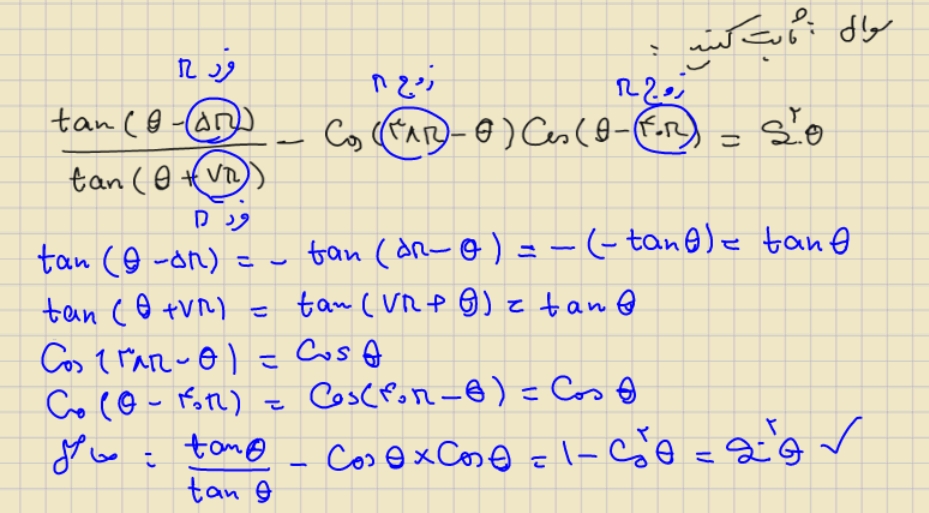 سوال : ثابت کنید :
فرد π زوج π زوج π
tan(θ-۵π) / tan(θ+۷π) - Cos(۳۸π-θ) Cos(θ-۴۰π) = Sin²θ
فرد π
tan(θ-۵π) = - tan(۵π-θ) = -(-tanθ) = tanθ
tan(θ+۷π) = tan(۷π+θ) = tanθ
Cos(۳۸π-θ) = Cosθ
Cos(θ-۴۰π) = Cos(۴۰π-θ) = Cosθ
: tanθ / tanθ - Cosθ×Cosθ = 1-Cos²θ = Sin²θ ✓